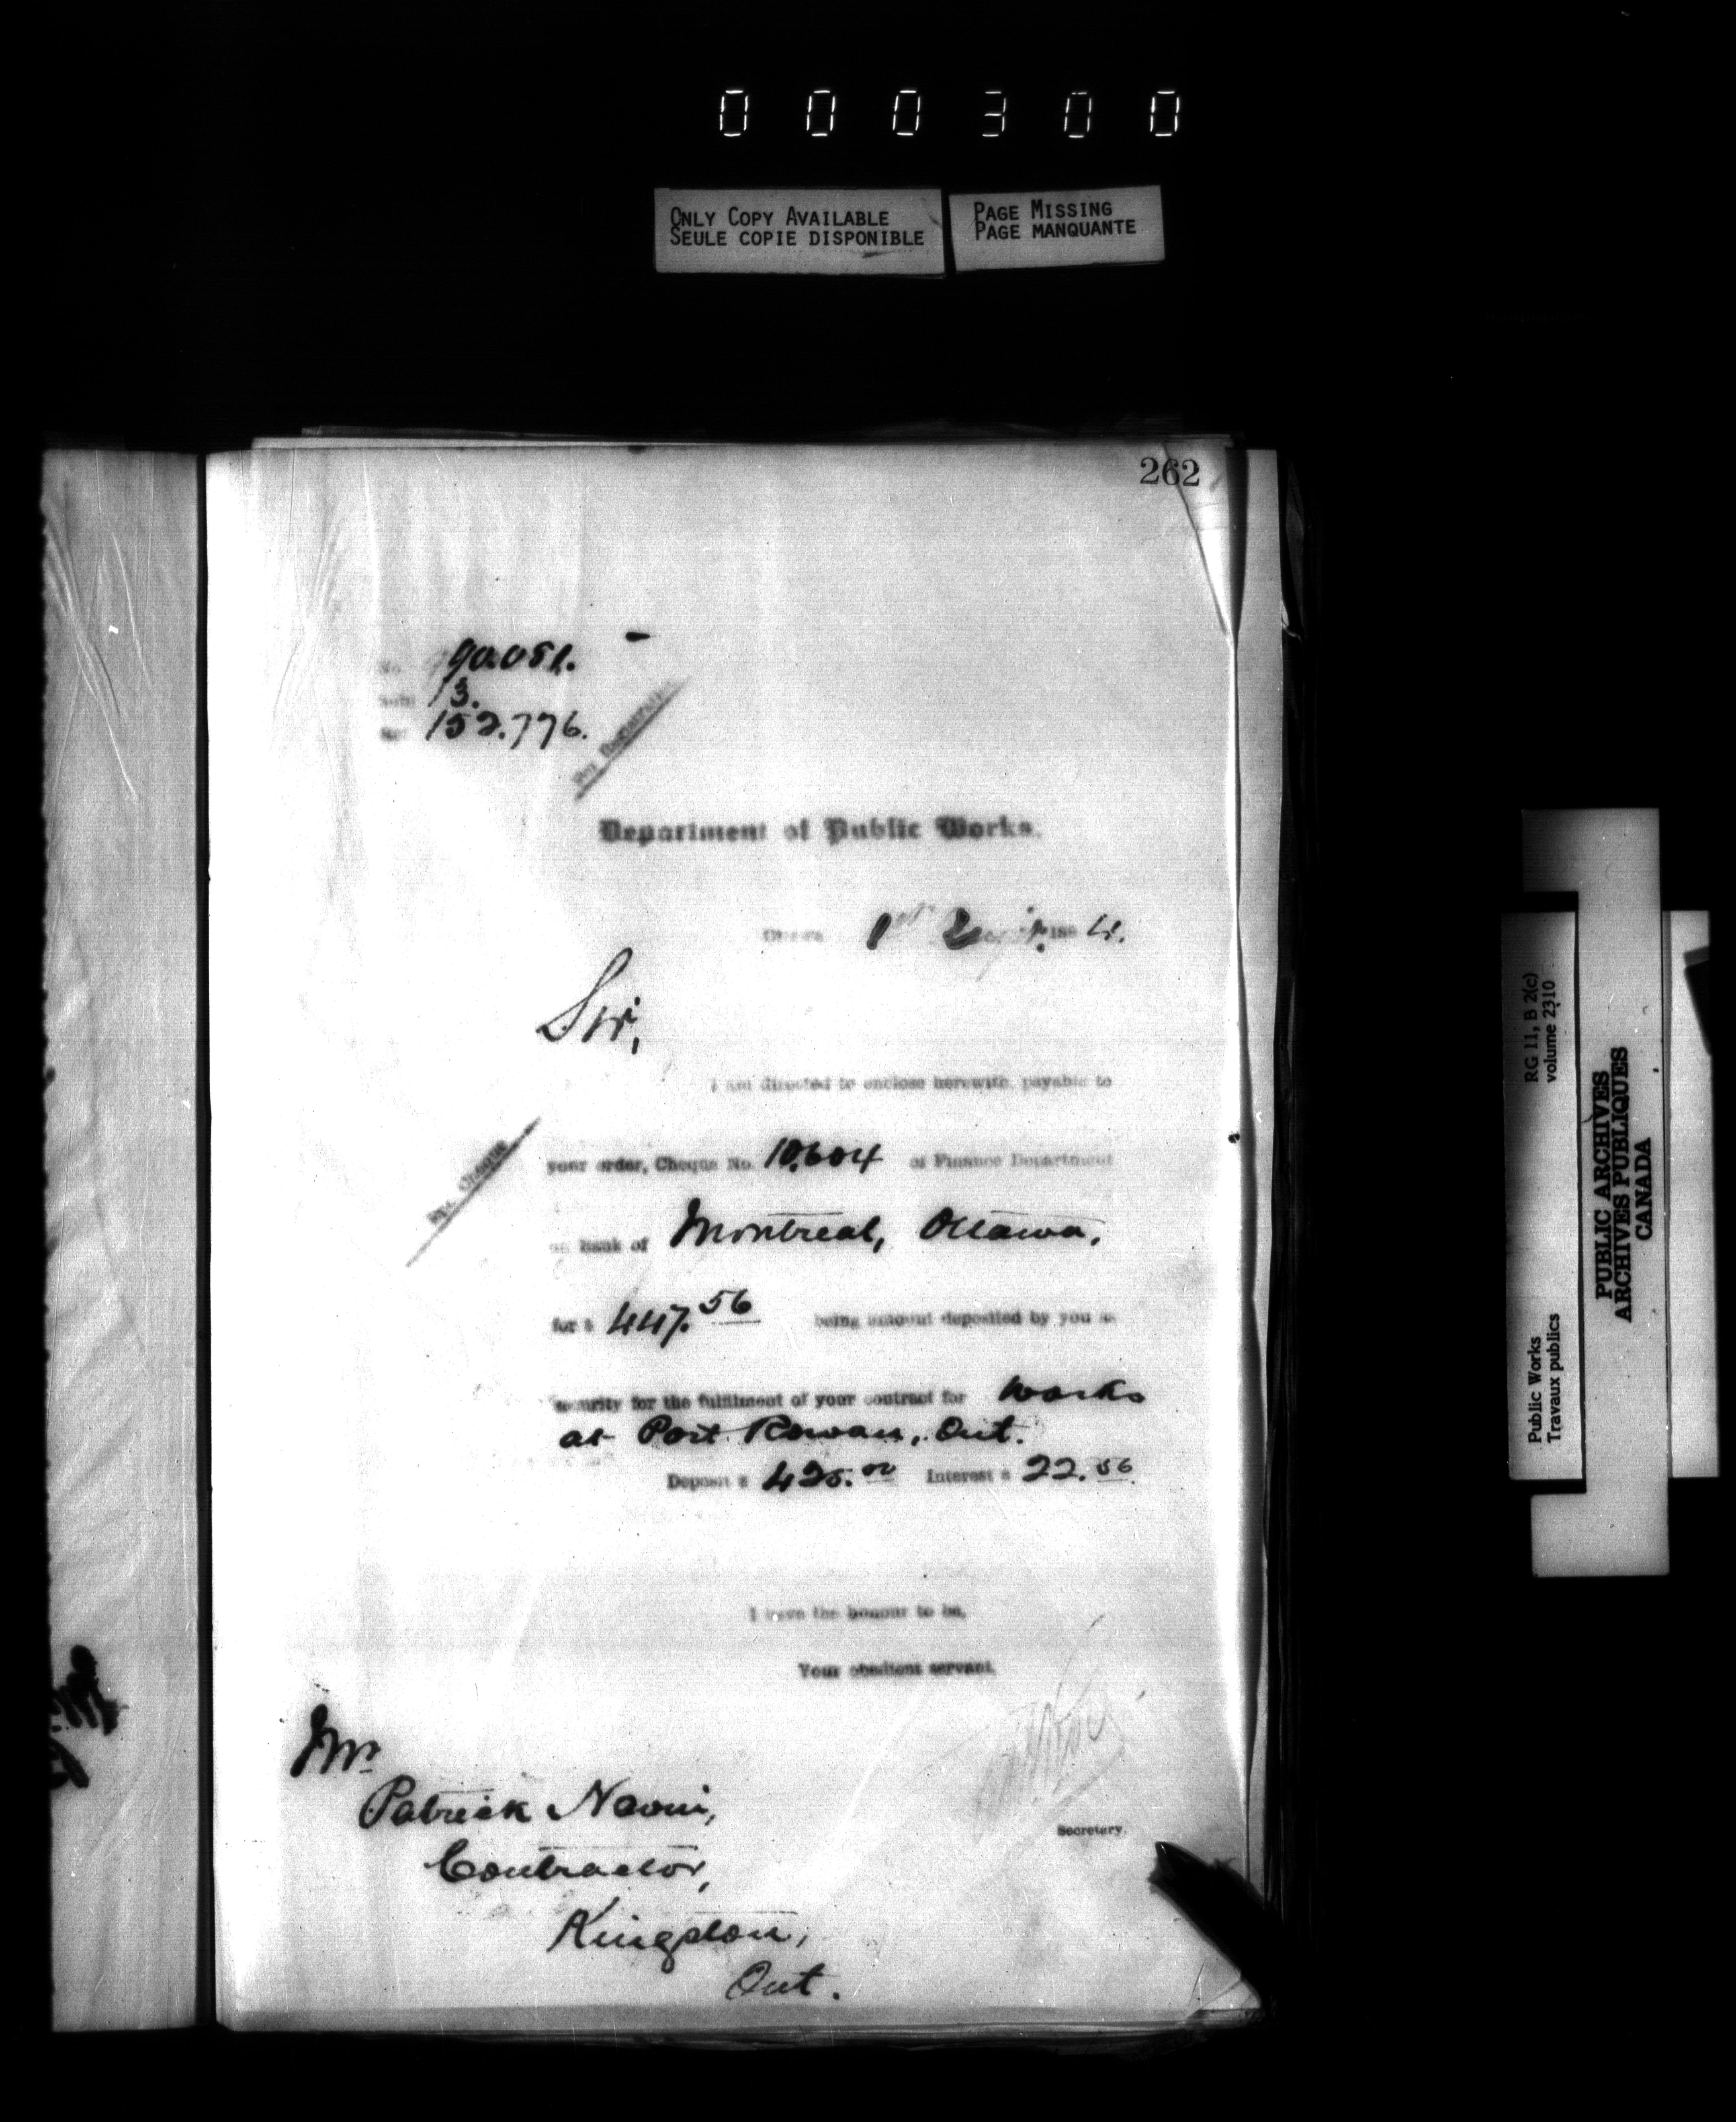 000300
ONLY COPY AVAILABLE
SEULE COPIE DISPONIBLE
PAGE MISSING
PAGE MANQUANTE
262
No. 90.051.
13.
152.776.
Department of Public Works.
Ottawa 1st 188 4.
Sir,
I am directed to enclose herewith, payable to
your order, Cheque No. 10,604 of Finance Department
on Bank of Montreal, Ottawa,
for $ 447.56 being amount deposited by you as
security for the fulfilment of your contract for works
at Port Rowan, Ont.
Deposit $ 425.00 Interest $ 22.56
I have the honour to be,
Your obedient servant,
Secretary.
Mr
Patrick Navin,
Contractor,
Kingston,
Ont.
Cheque
RG 11, B 2(c)
volume 2310
Public Works
Travaux publics
PUBLIC ARCHIVES
ARCHIVES PUBLIQUES
CANADA